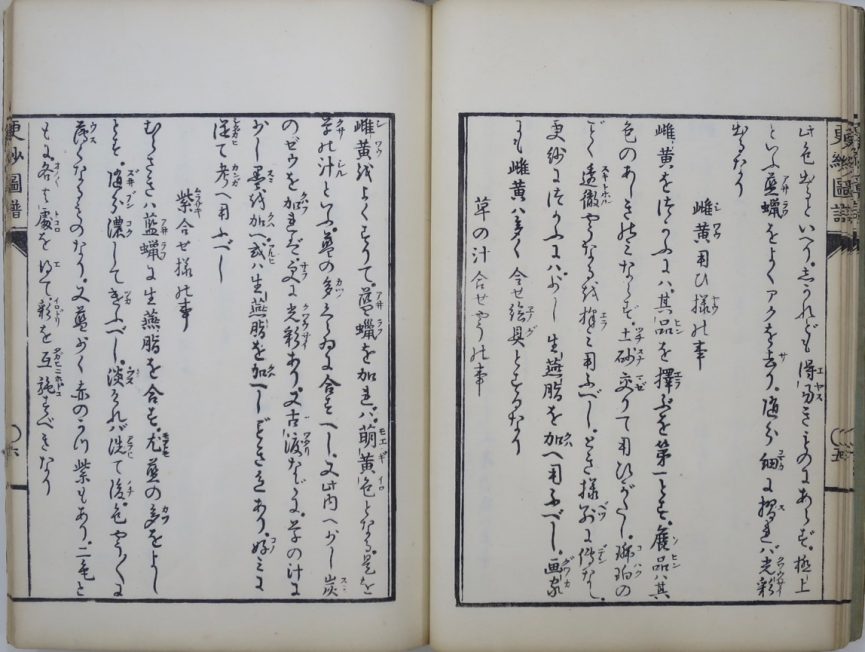 此色出るといへり。しかれども得易きものにあらず。極上
といふ藍蠟をよくアクを去り。随分細に摺れバ光彩
出るなり
雌黄用ひ様の事
雌黄をつかふにハ。其品を擇ぶを第一とす。贋品ハ其
色のあしきのミならず。土砂交りて用ひがたし。琥珀の
ごとく透徹やうなるを擇ミ用ふべし。とき様別に傳なし。
更紗につかふにハ。少し生燕脂を加へ用ふべし。画家
にも雌黄ハ多く合せ絵具とするなり
草の汁合せやうの事
雌黄をよくすりて。藍蠟を加れバ。萌黄色となる。是を
草の汁といふ。藍の多きかたに合すべし。又此内へ少し炭
のゼウを加れバ。更に光彩あり。又古渡などに。草の汁に
少し墨を加へ。或ハ生燕脂を加へしごときもあり。好ミに
従て考へ用ふべし
紫合せ様の事
むらさきハ藍蠟に生燕脂を合す。尤藍の多をよし
とす。随分濃してきふべし。淡けれバ洗て後。色やうやくに
薄くなるものなり。又藍少く赤のかつ紫もあり。二色と
もに。各其處を得て。彩を互施すべきなり
更紗圖譜
五
更紗圖譜
六